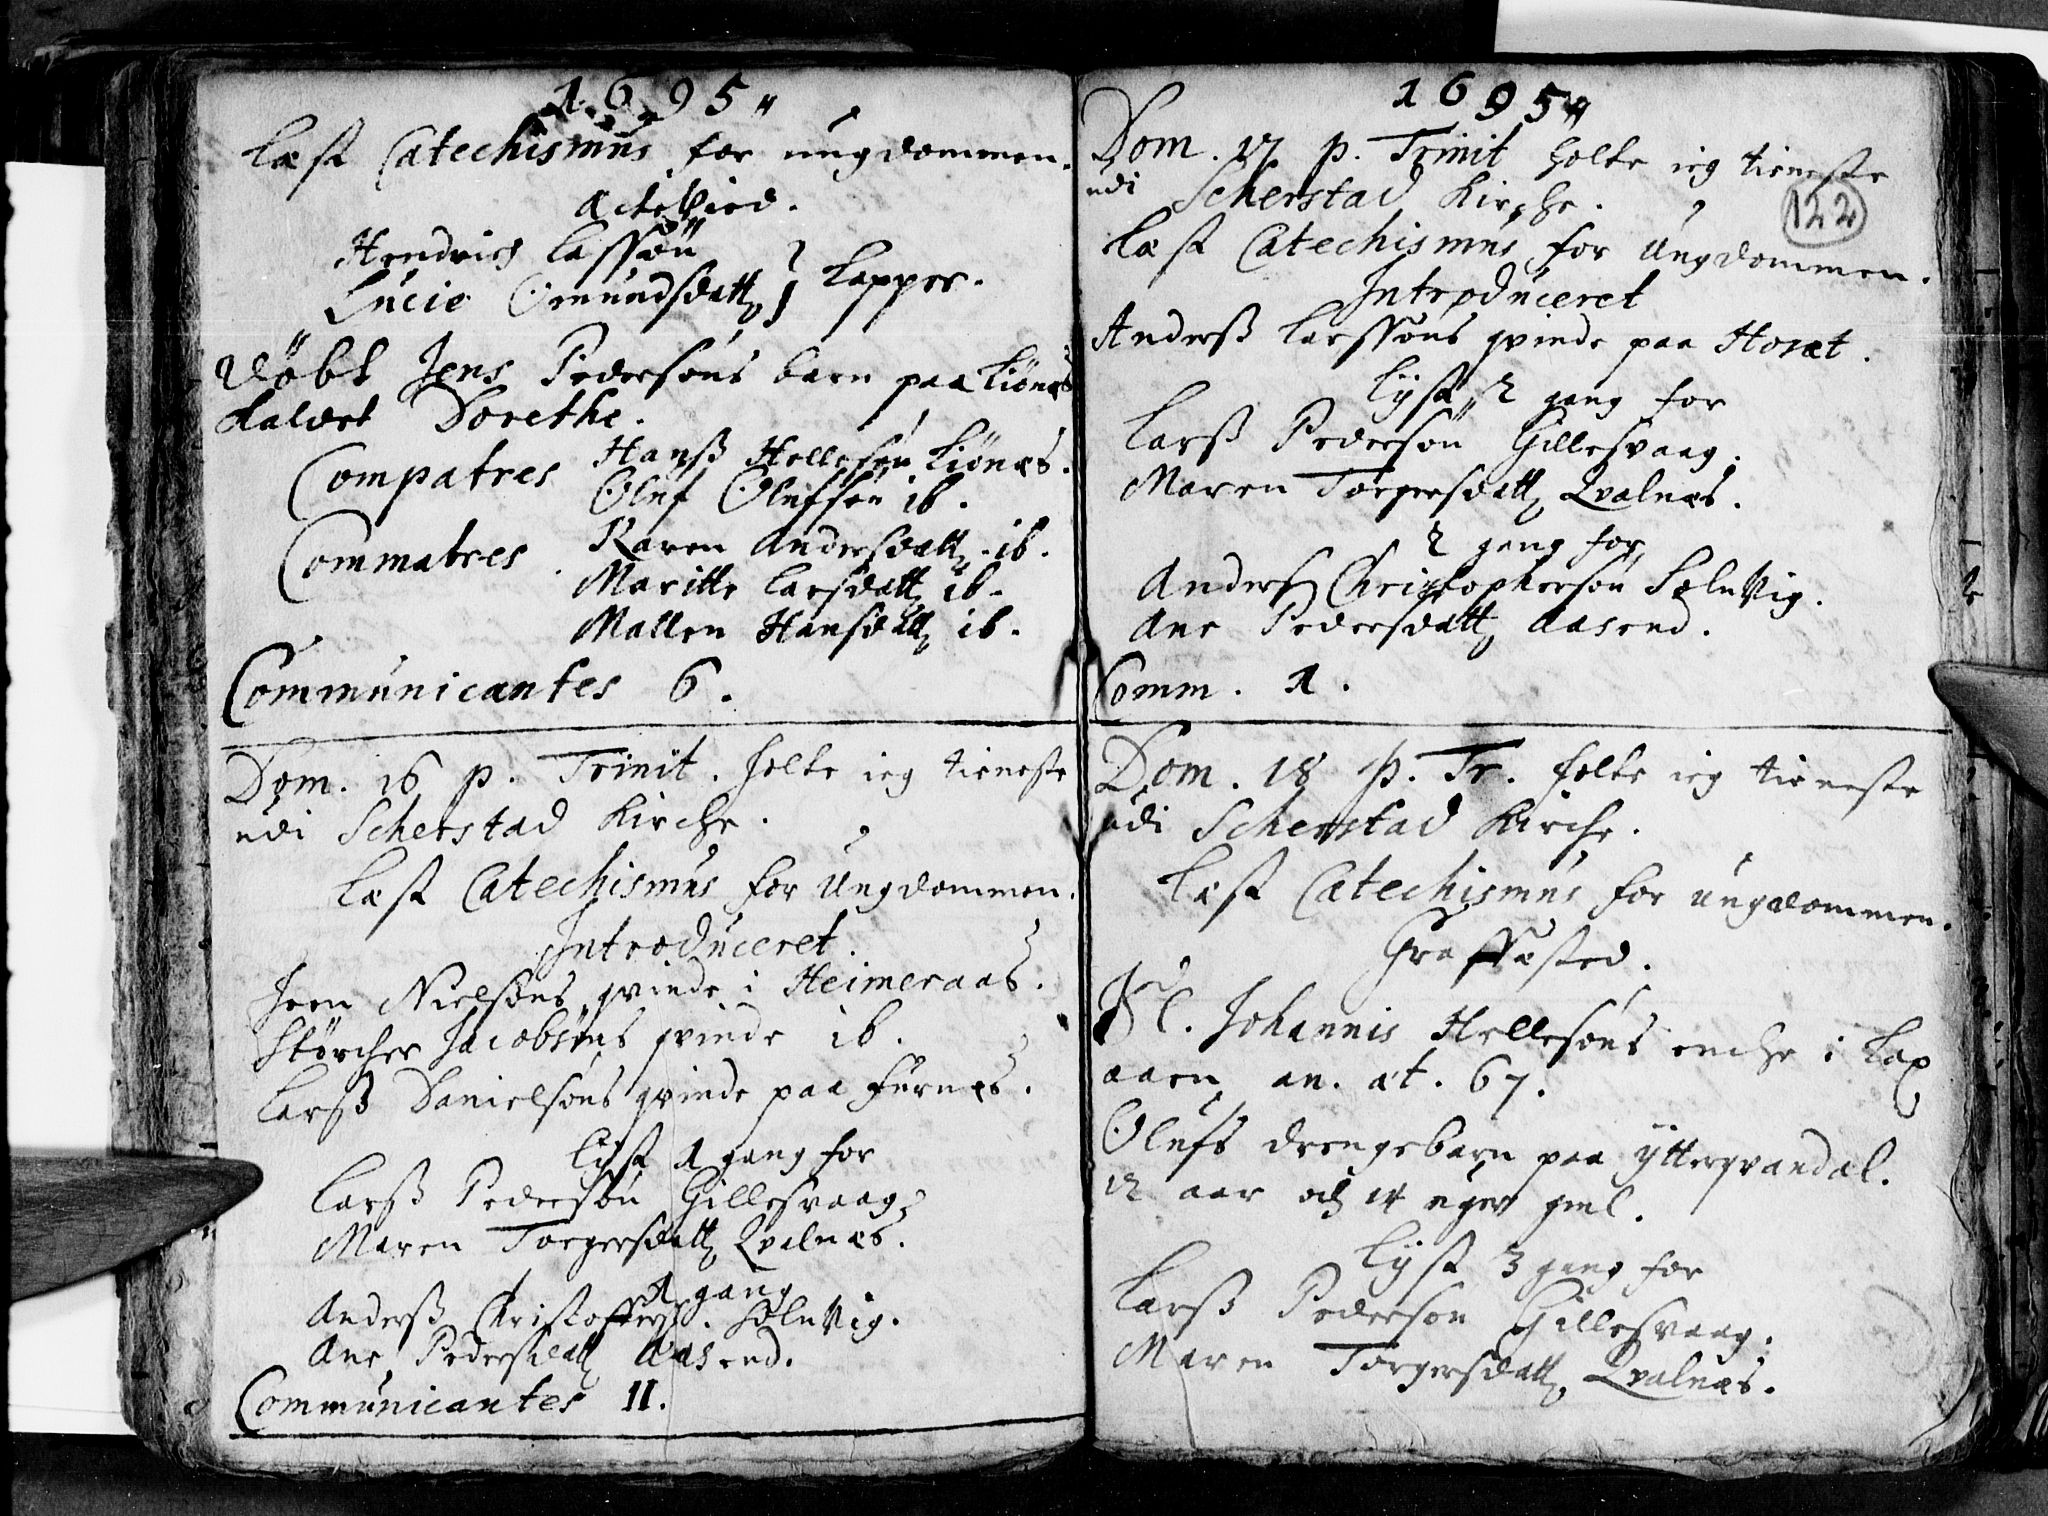 1695
Læst Catechismus for ungdommen.
Actevied.
Hendrich Lassøn
Lucie Omundsdatt } Lapper.
Døbt Jens Pedersøns barn paa Liønæs
kaldet Dorethe.
Compatres Hanß Hellesøn Liønæs.
Oluf Olufsøn ib.
Commatres Karen Andersdatt ib.
Maritte Larsdatt ib.
Mallen Hansdatt ib.
Communicantes 6.
Dom. 16 p. Trinit. holte ieg tieneste
udi Scherstad Kirche.
Læst Catechismus for Ungdommen.
Introduceret.
Jven Nielsøns qvinde i Heimeraas.
Størcher Jacobsøns qvinde ib.
Larß Danielsøns qvinde paa Furnæs.
Lyst 1 gang for
Larß Pedersøn Gillesvaag
Maren Torgersdatt Qvalnæs.
1 gang
Anderß Christoffers. SølnVig.
Ane Pedersdatt Aasend.
Communicantes 11.
1695
Dom. 17. p. Trinit holte ieg tieneste
udi Scherstad Kirche.
122
Læst Catechismus for Ungdommen.
Introduceret
Anderß Larssøns qvinde paa Hoset.
Lyst 2 gang for
Larß Pedersøn Gillesvaag.
Maren Torgersdatt Qvalnæs.
2 gang for
Anders Christophersøn SølnVig.
Ane Pedersdatt Aasend.
Comm. 1.
Dom. 18 p. Tr. holte ieg tieneste
udi Scherstad Kirche.
Læst Catechismus for ungdommen.
Graffæsted.
Sl. Johannis Hellesøns enche i Lax
aaen an. æt. 67.
Olufs drengebarn paa ytterqvandal.
2 aar och 14 uger gml.
Lyst 3 gang for
Larß Pedersøn Gillesvaag.
Maren Torgersdatt Qvalnæs.